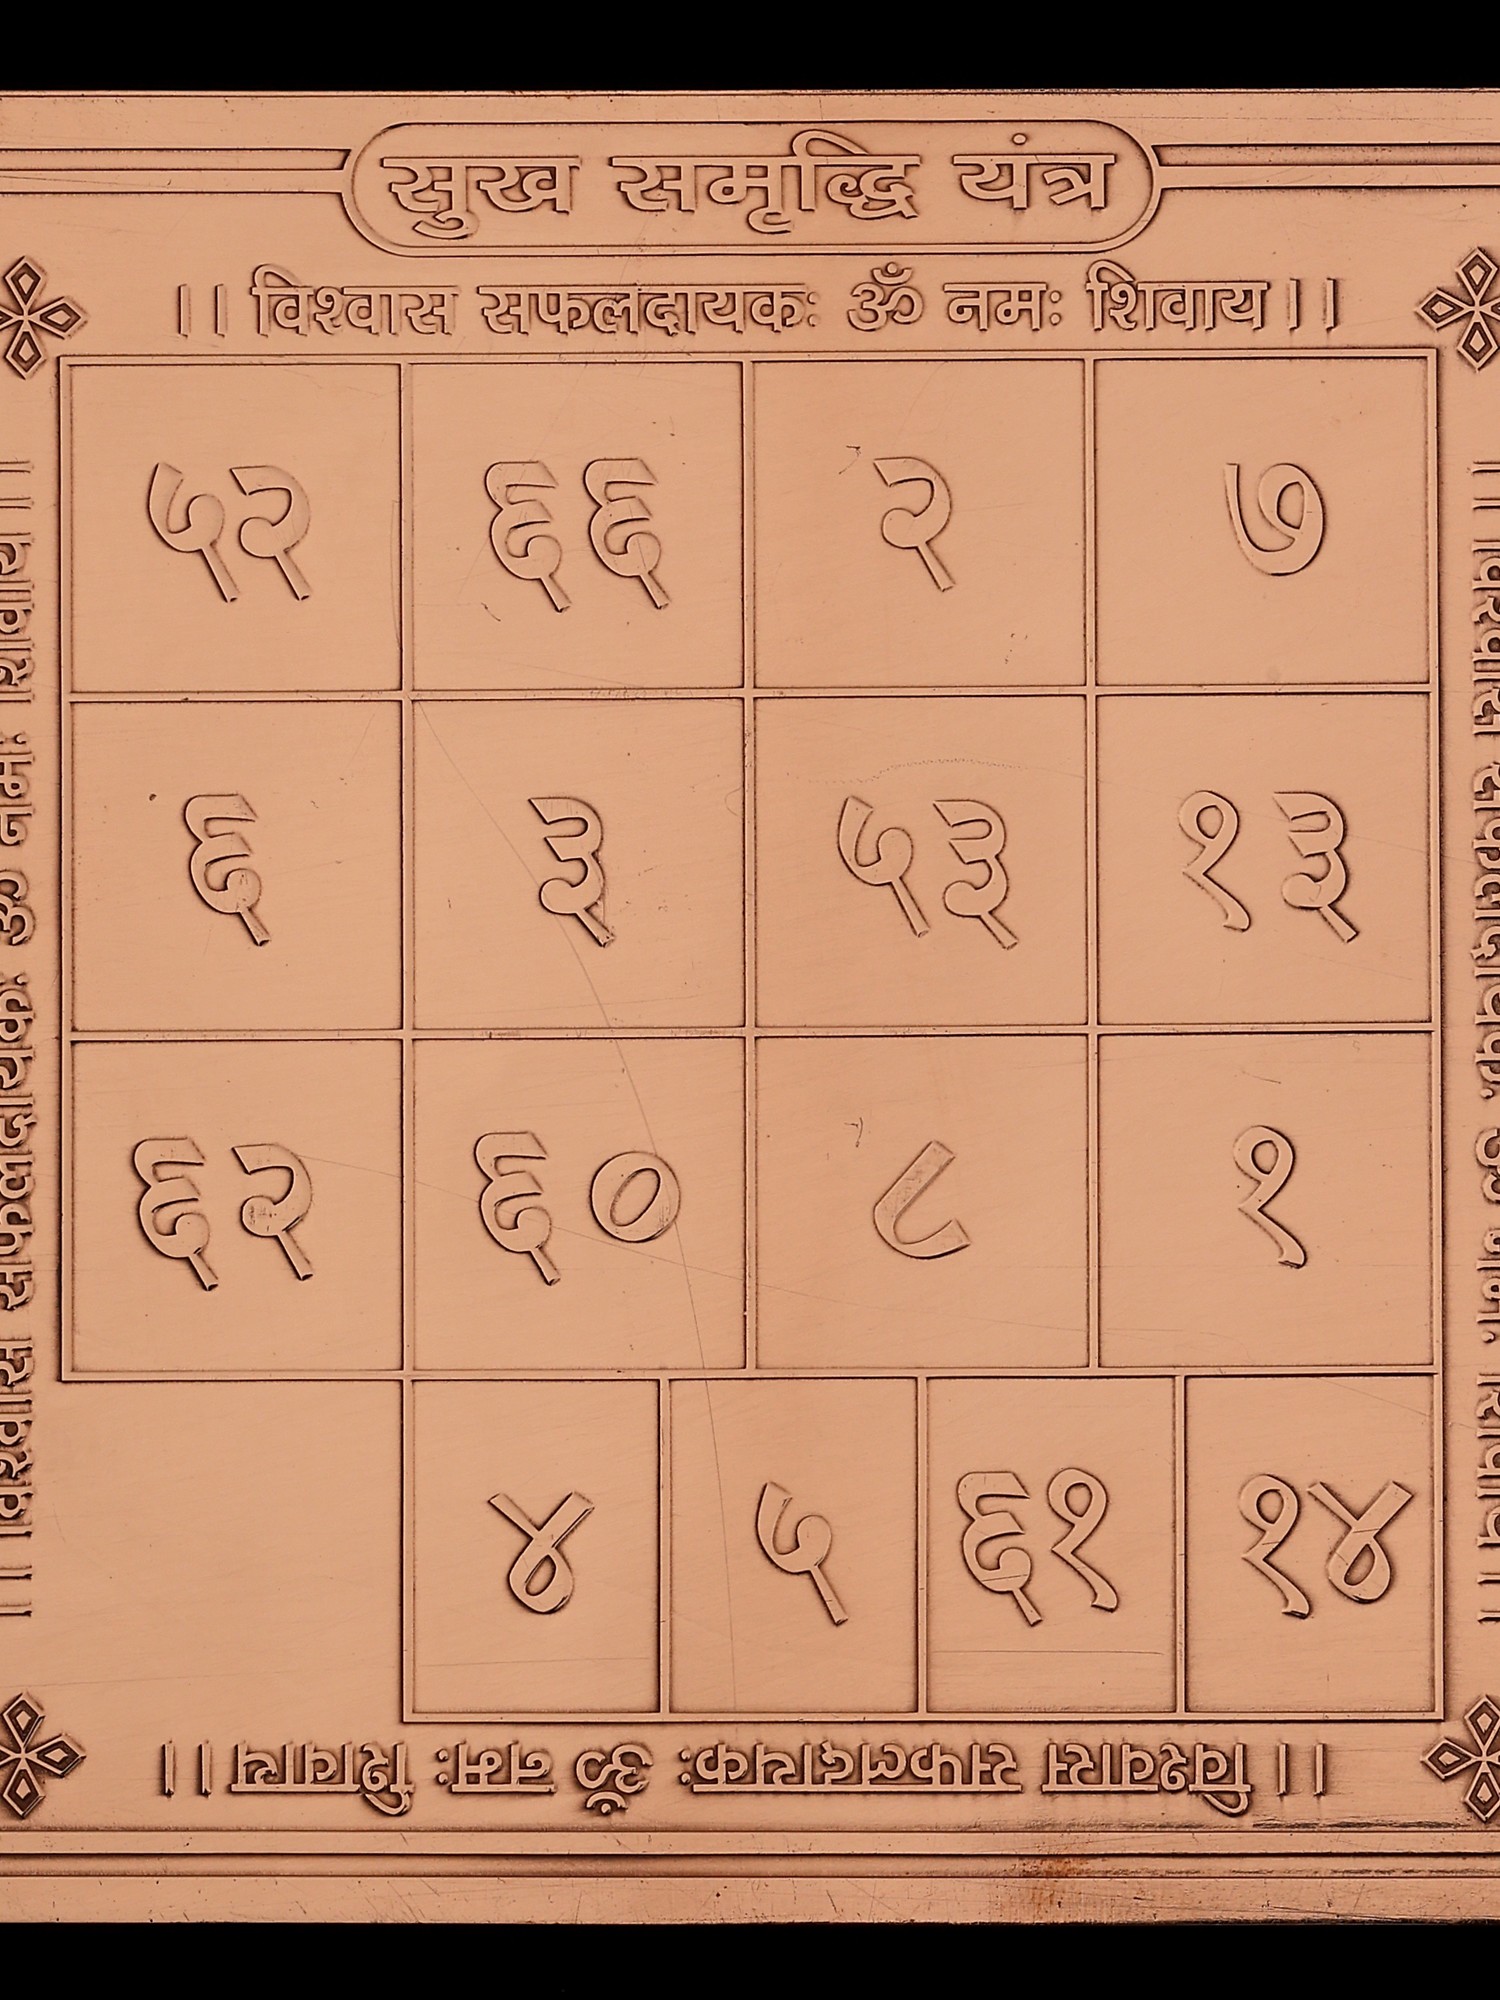 सुख समृद्धि यंत्र
।। विश्वास सफलदायकः ॐ नमः शिवाय ।।
५२ ६६ २ ७
६ ३ ५३ १३
६२ ६० ८ १
४ ५ ६१ १४
।। विश्वास सफलदायकः ॐ नमः शिवाय ।।
।। विश्वास सफलदायकः ॐ नमः शिवाय ।।
।। विश्वास सफलदायकः ॐ नमः शिवाय ।।